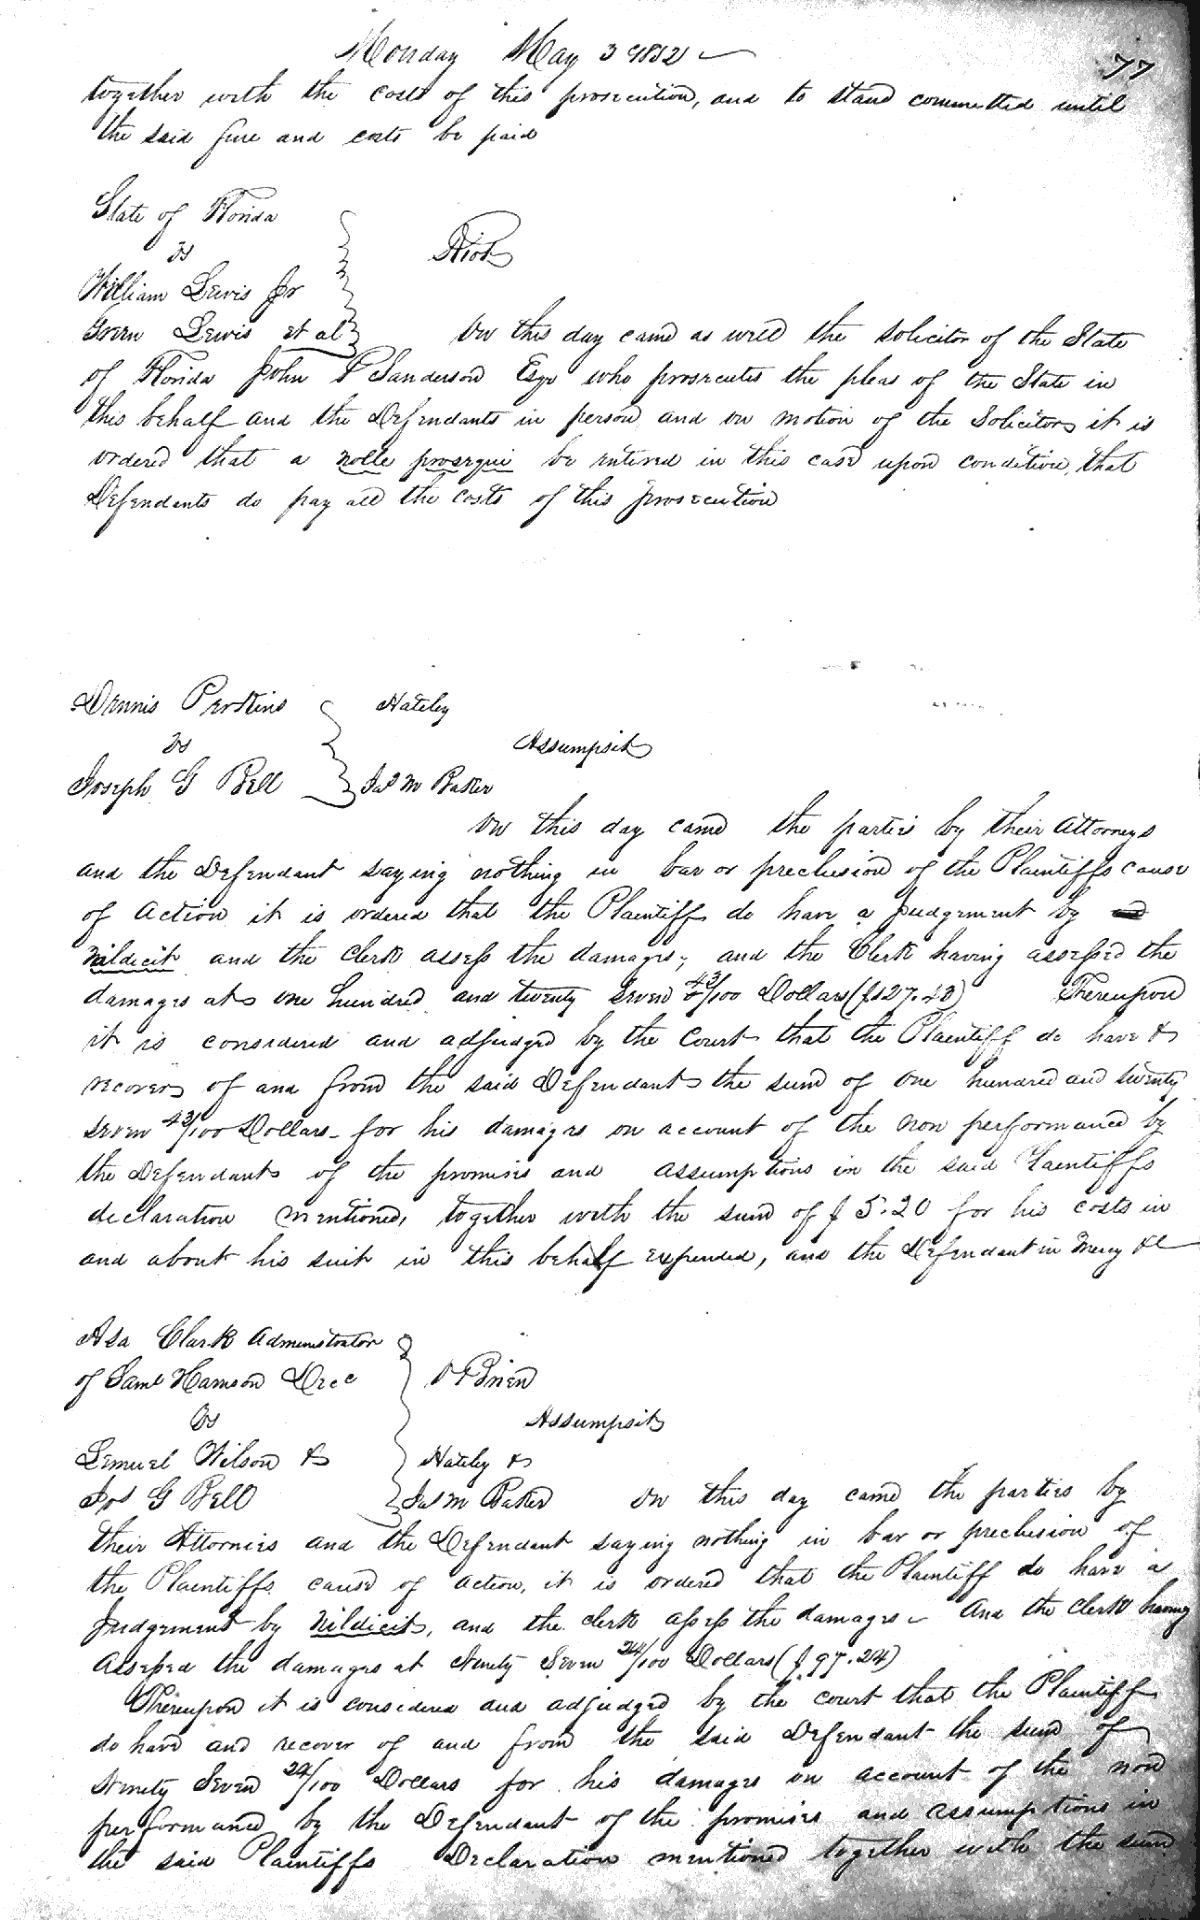 Monday May 3 1852
77
together with the costs of this prosecution, and to stand committed until
the said fine and costs be paid
State of Florida
vs
Riot
William Lewis Jr
Green Lewis et al
On this day came as well the Solicitor of the State
of Florida John P Sanderson Esqr who prosecutes the pleas of the State in
this behalf and the Defendants in person and on motion of the Solicitor it is
ordered that a nolle prosequi be entered in this case upon condition, that
Defendants do pay all the costs of this prosecution
Dennis Perkins
Hateley
vs
Assumpsit
Joseph G Bell
Jas M Baker
On this day came the parties by their Attorneys
and the Defendant saying nothing in bar or preclusion of the Plaintiffs cause
of Action it is ordered that the Plaintiff do have a Judgement by
Nildicit and the Clerk assess the damages, and the Clerk having assessed the
damages at one hundred and twenty seven 43/100 Dollars ($127.43) Thereupon
it is considered and adjudged by the Court that the Plaintiff do have &
recover of and from the said Defendant the sum of one hundred and twenty
seven 43/100 Dollars for his damages on account of the non performance by
the Defendant of the promises and assumptions in the said Plaintiffs
declaration mentioned, together with the sum of $ 5.20 for his costs in
and about his suit in this behalf expended, and the Defendant in Mercy &c
Asa Clark Administrator
of Saml Hamson Decc
O'Brien
vs
Assumpsit
Lemuel Wilson &
Hateley &
Jos G Bell
Jas M Baker
On this day came the parties by
their Attornies and the Defendant saying nothing in bar or preclusion of
the Plaintiffs cause of action, it is ordered that the Plaintiff do have a
Judgement by Nildicit, and the Clerk assess the damages And the Clerk having
Assessed the damages at Ninety Seven 24/100 Dollars ($ 97.24)
Thereupon it is considered and adjudged by the court that the Plaintiff
do have and recover of and from the said Defendant the sum of
Ninety Seven 24/100 Dollars for his damages on account of the non
performance by the Defendant of the promises and assumptions in
the said Plaintiffs Declaration mentioned together with the sum